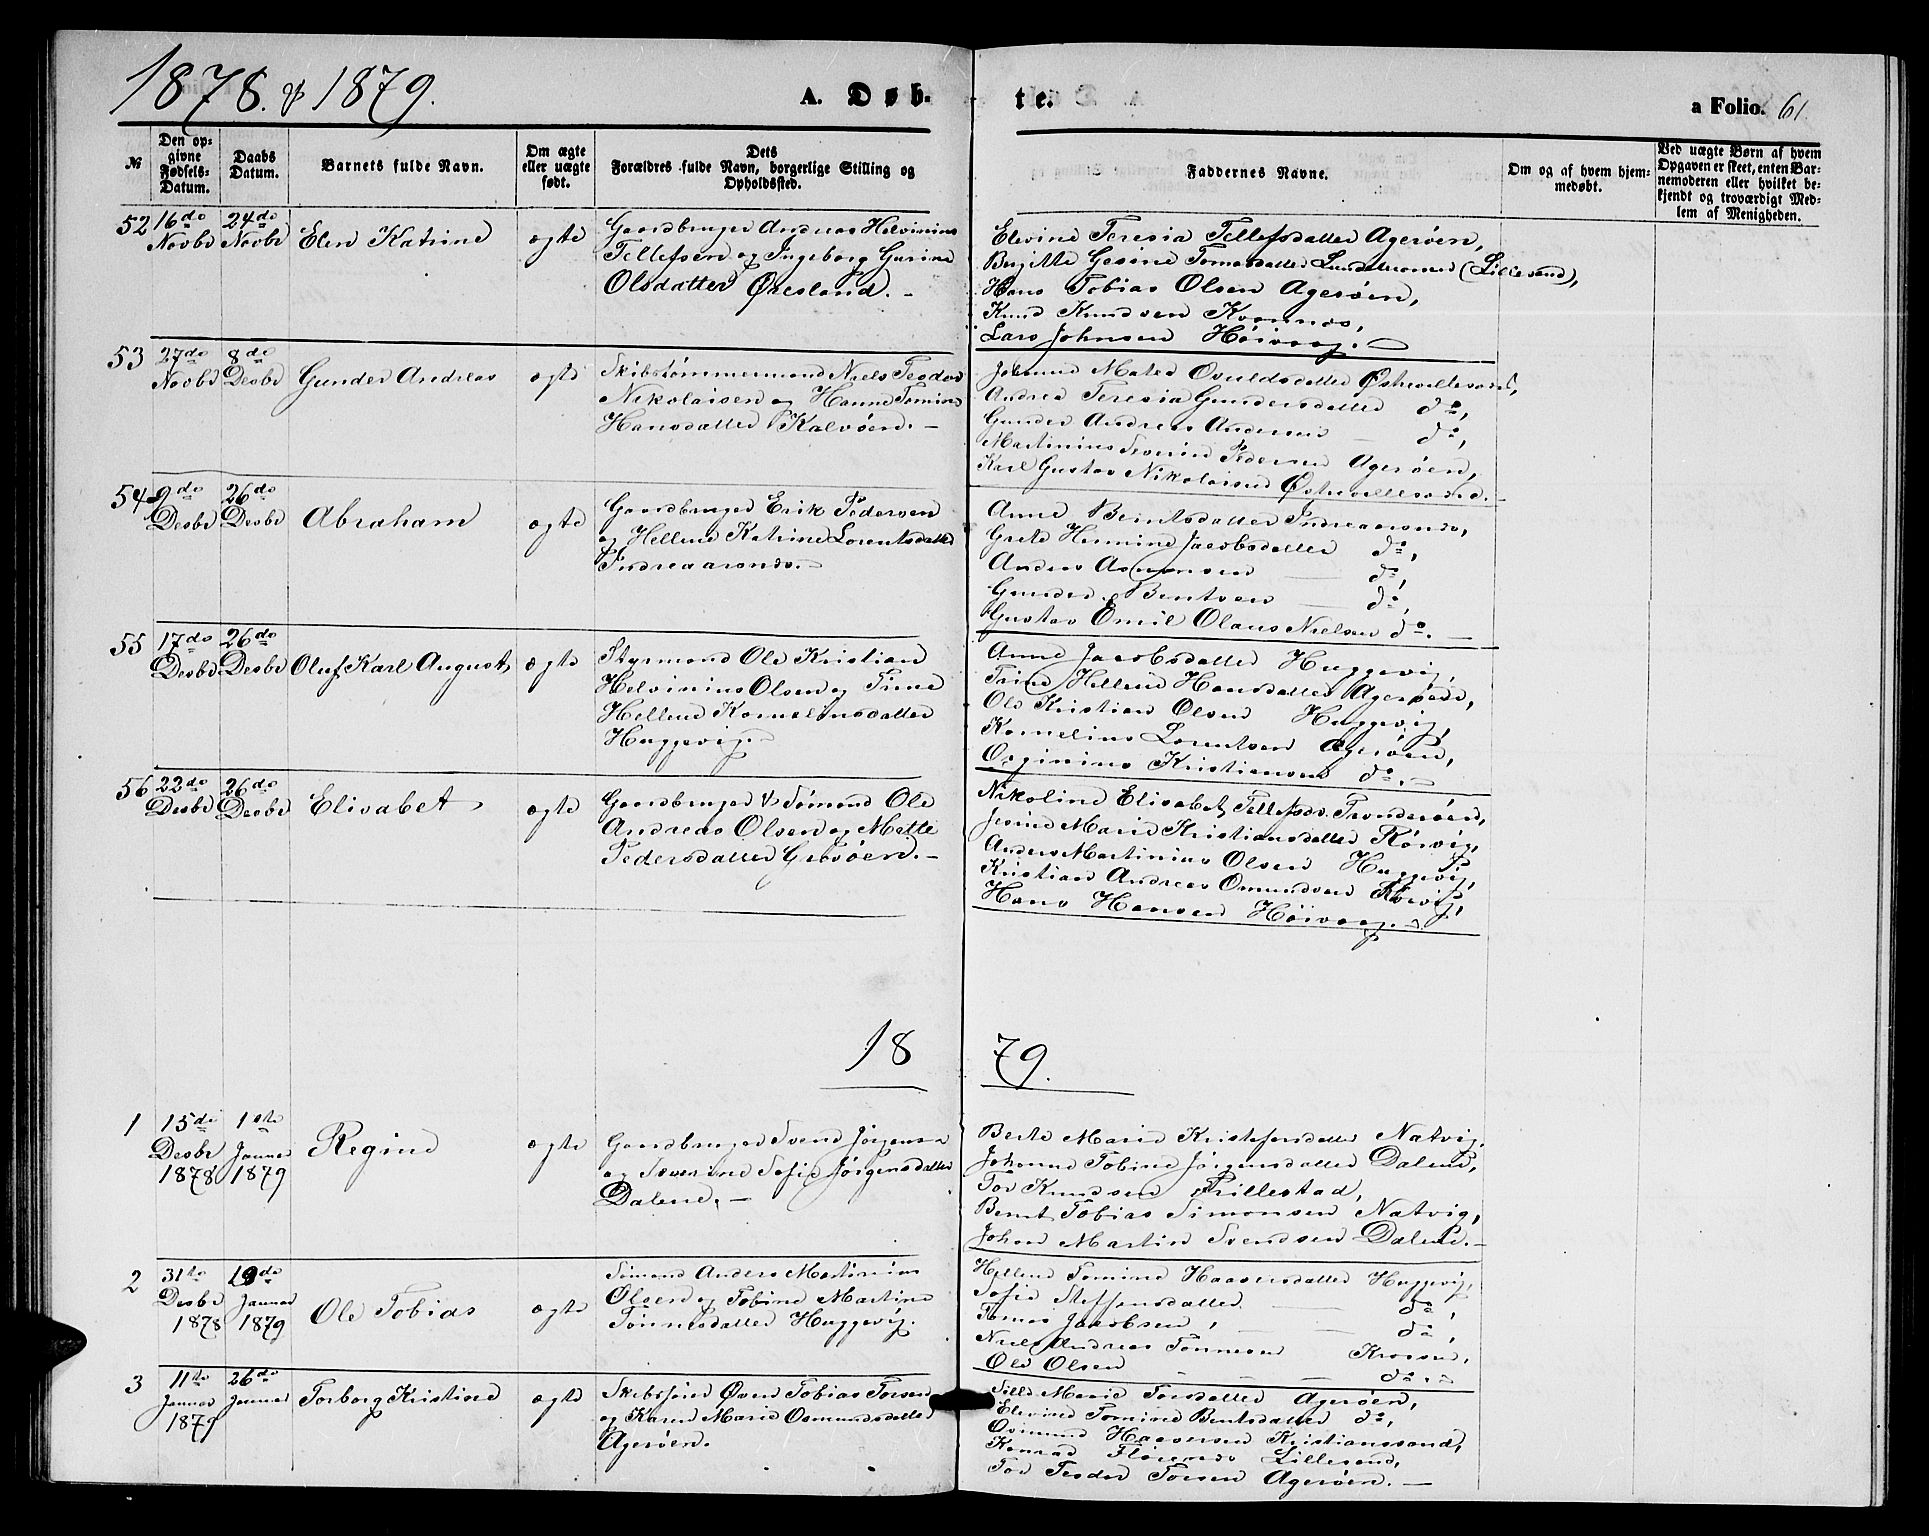 1878. & 1879.
A. Døb- te. a Folio. 61.
№
Den op-
givne
Fødsels-
Datum.
Daabs
Datum.
Barnets fulde Navn.
Om ægte
eller uægte
født.
Dets
Forældres fulde Navn, borgerlige Stilling og
Opholdssted.
Faddernes Navne.
Om og af hvem hjem-
medøbt.
Ved uægte Børn af hvem
Opgaven er skeet, enten Bar-
nemoderen eller hvilket be-
kjendt og troværdigt Med-
lem af Menigheden.
52
16de
Novbr
24de
Novbr
Elen Katrine
ægte
Gaardbruger Andreas Helvinius
Tellefsen og Ingeborg Gurine
Olsdatter Øresland. -
Elevine Teresia Tellefsdatter Agerøen,
Berjitte Gesine Tomasdatter (Lillesand),
Hans Tobias Olsen Agerøen,
Knud Knudsen
Lars Johnsen Høivaag. -
53
27de
Novbr
8de
Desbr
Gunder Andreas
ægte
Skibstømmermand Niels Teodor
Nikolaisen og Hanne Tomine
Hansdatter Kalvøen. -
Johanne Maten Osuldsdatter Østrevallesand,
Andrea Teresia Gundersdatter do,
Gunder Andreas Andersen do,
Martinius Severin Pedersen Agerøen,
Karl Gustav Nikolaisen Østrevallesand. -
54
2de
Desbr
26de
Desbr
Abraham
ægte
Gaardbruger Erik Pedersen
og Hellene Katrine Lorentsdatter
Indreaarsnes. -
Anne Berntsdatter Indreaarsnes,
Grete Hermine Jacobsdatter do,
Anders Asmonsen do,
Gunder Bentsen do,
Gustav Emil Olaus Nielsen do. -
55
17de
Desbr
26de
Desbr
Oluf Karl August
ægte
Styrmand Ole Kristian
Helvinius Olsen og Trine
Hellene Korneliusdatter
Huggevig.
Anne Jacobsdatter Huggevig,
Trine Hellene Hansdatter Agerøen,
Ole Kristian Olsen Huggevig,
Kornelius Lorentsen Agerøen,
Orginius Kristiansen do. -
56
22de
Desbr
26de
Desbr
Elisabet
ægte
Gaardbruger & Sømand Ole
Andreas Olsen og Mette
Pedersdatter Grøsøen. -
Nikoline Elisabet Tellefsdr. Trondersøen,
Jesine Marie Kristiansdatter Rørvig,
Anders Martinius Olsen Huggevig,
Kristian Andreas Omundsen Rørvig,
Hans Hansen Høivaag. -
18 79.
1
15de
Desbr
1878
1ste
Januar
1879
Regine
ægte
Gaardbruger Svend Jørgensen
og Severine Sofie Jørgensdatter
Dalene. -
Berte Marie Kristofersdatter Natvig,
Johanne Tobine Jørgensdatter Dalene,
Tor Knudsen Trillestad,
Bernt Tobias Simonsen Natvig,
Johan Martin Svendsen Dalene. -
2
31te
Desbr
1878
19de
Januar
1879
Ole Tobias
ægte
Sømand Anders Martinius
Olsen og Tobine Martine
Tønnesdatter Huggevig.
Hellene Tomine Haaversdatter Huggevig,
Sofie Steffensdatter do,
Tomas Jacobsen, do,
Niels Andreas Tønnesen Krossen,
Ole Olsen do. -
3
11te
Januar
1879
26de
Januar
Torborg Kristine
ægte
Skibsfører Øven Tobias Torsen
og Karen Marie Osmundsdatter
Agerøen.
Sille Marie Torsdatter Agerøen,
Elevine Tomine Bentsdatter do,
Osmund Haaversen Kristianssand,
Konrad Lillesand,
Tor Teodor Torsen Agerøen. -